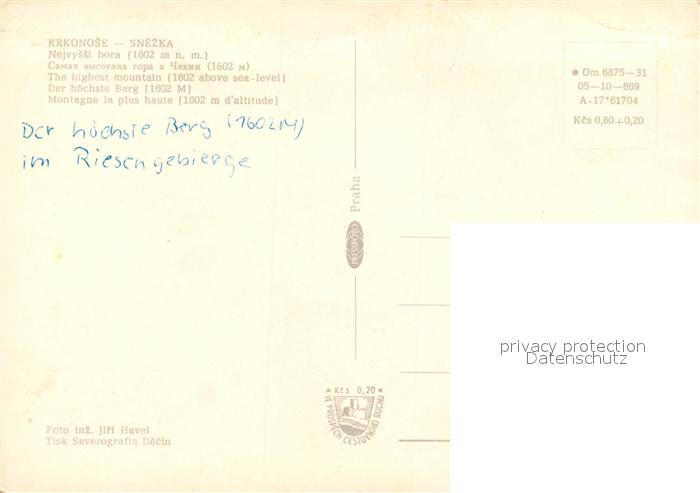 KRKONOŠE — SNĚŽKA
Nejvyšší hora (1602 m n. m.)
Самая высокая гора в Чехии (1602 м)
The highest mountain (1602 above sea-level)
Der höchste Berg (1602 M)
Montagne la plus haute (1602 m d'altitude)
Der höchste Berg (1602M)
im Riesengebierge
Om 6875—31
05—10—669
A-17*61704
Kčs 0,80+0,20
Praha
PRESSFOTO
privacy protection
Datenschutz
Kčs 0,20
VE PROSPĚCH CESTOVNÍHO RUCHU
Foto inž. Jiří Havel
Tisk Severografia Děčín